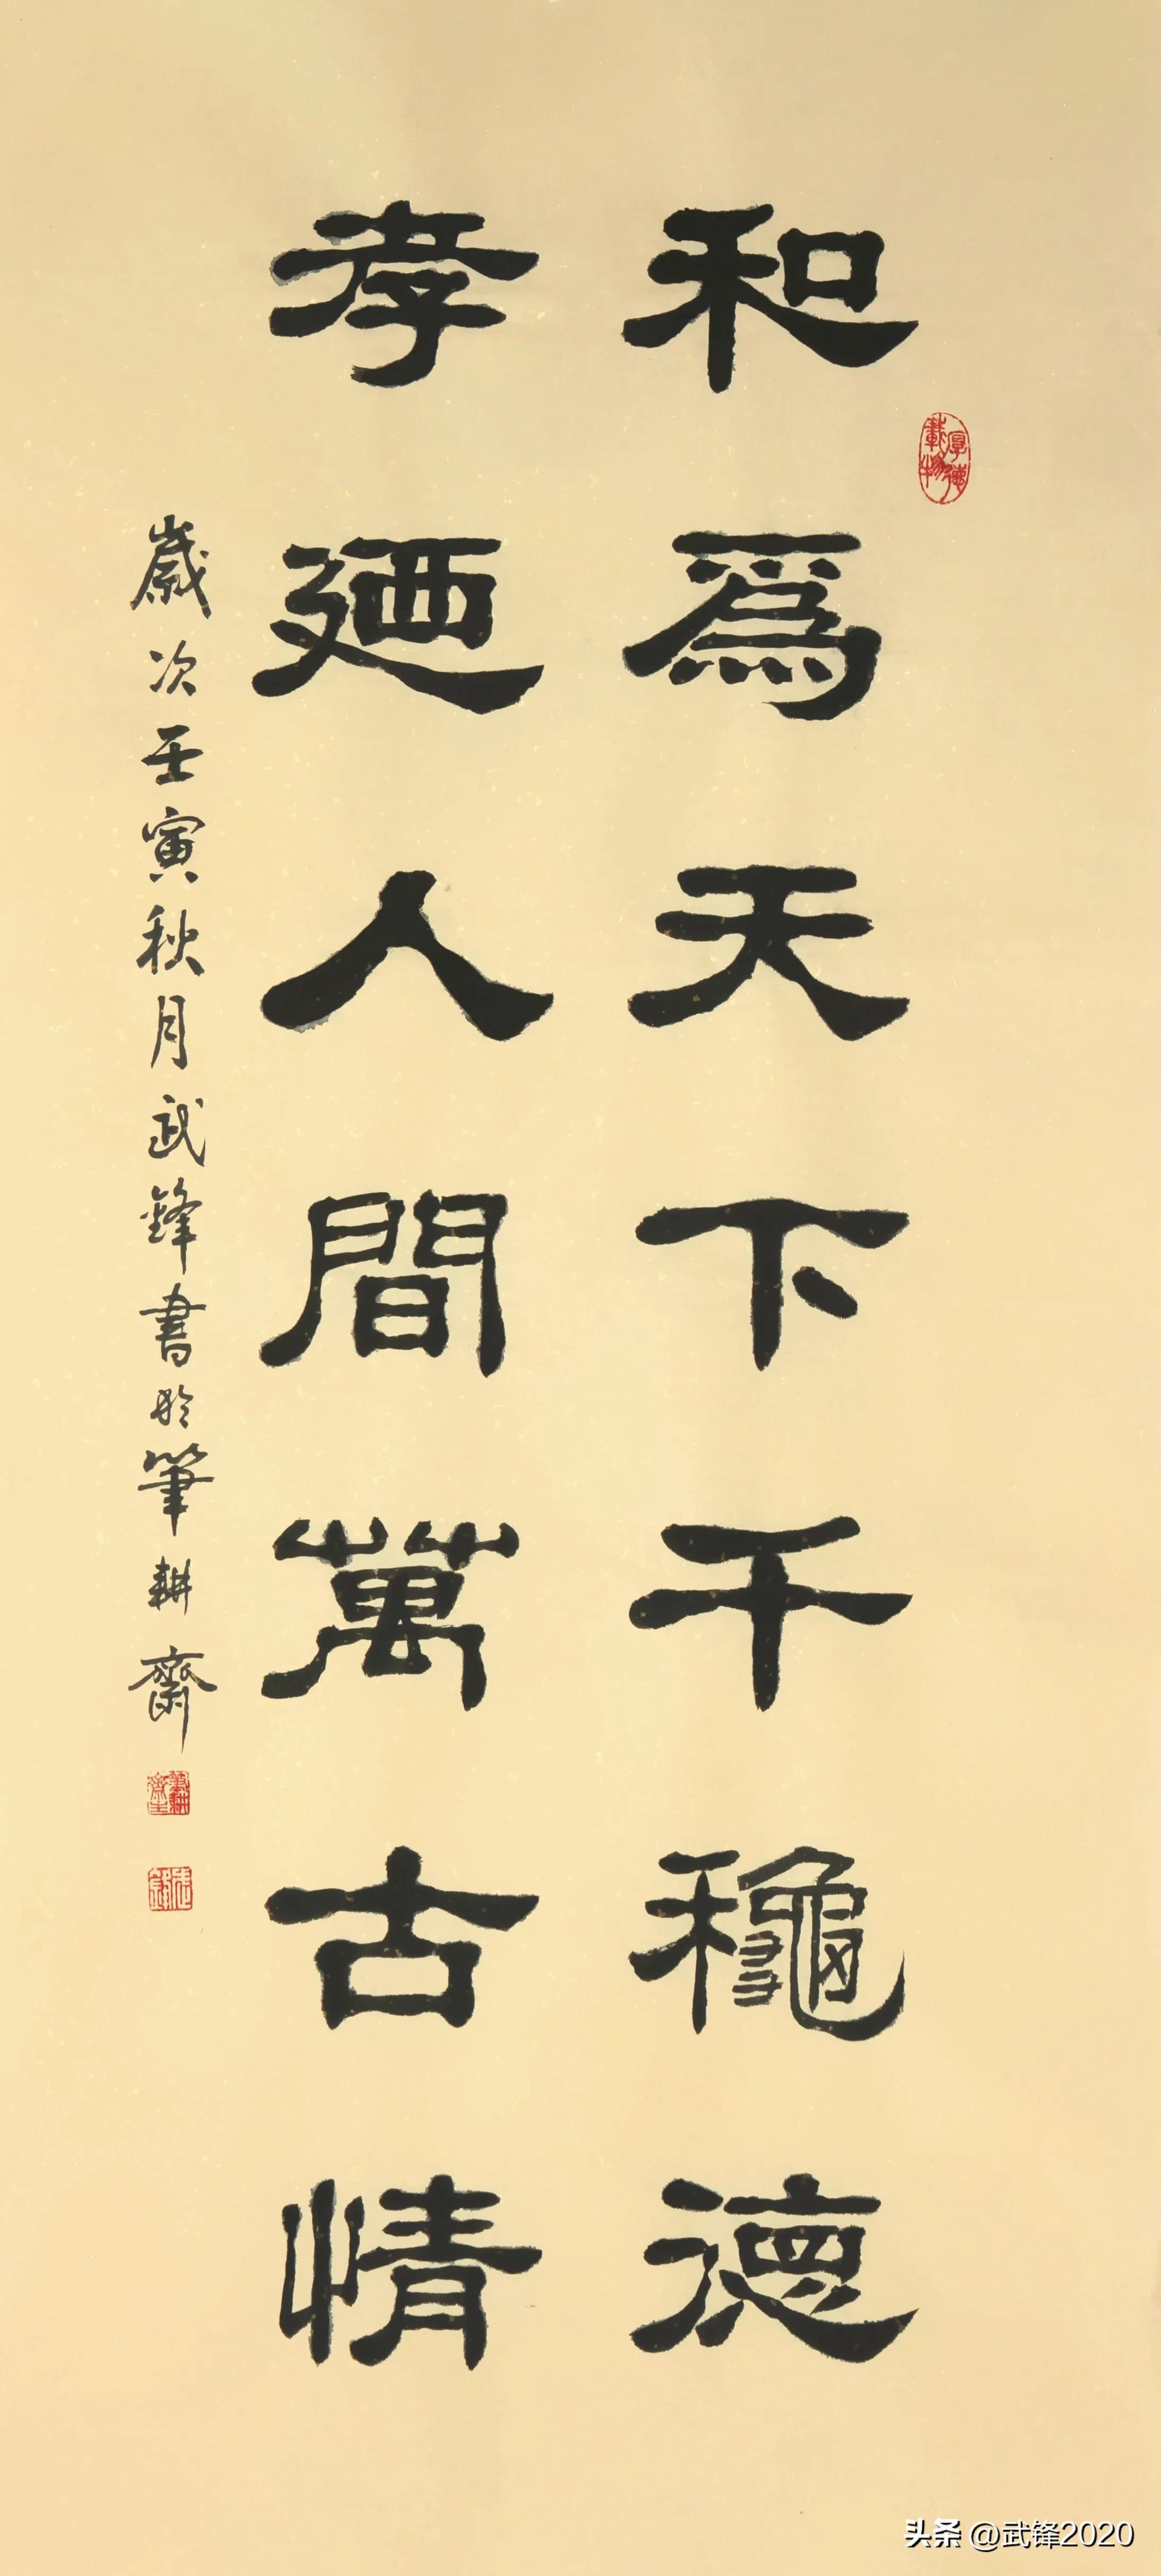 和爲天下千龝德
孝廼人間萬古情
歲次壬寅秋月武鋒書於筆耕齋
厚德載物
頭条 @武锋2020